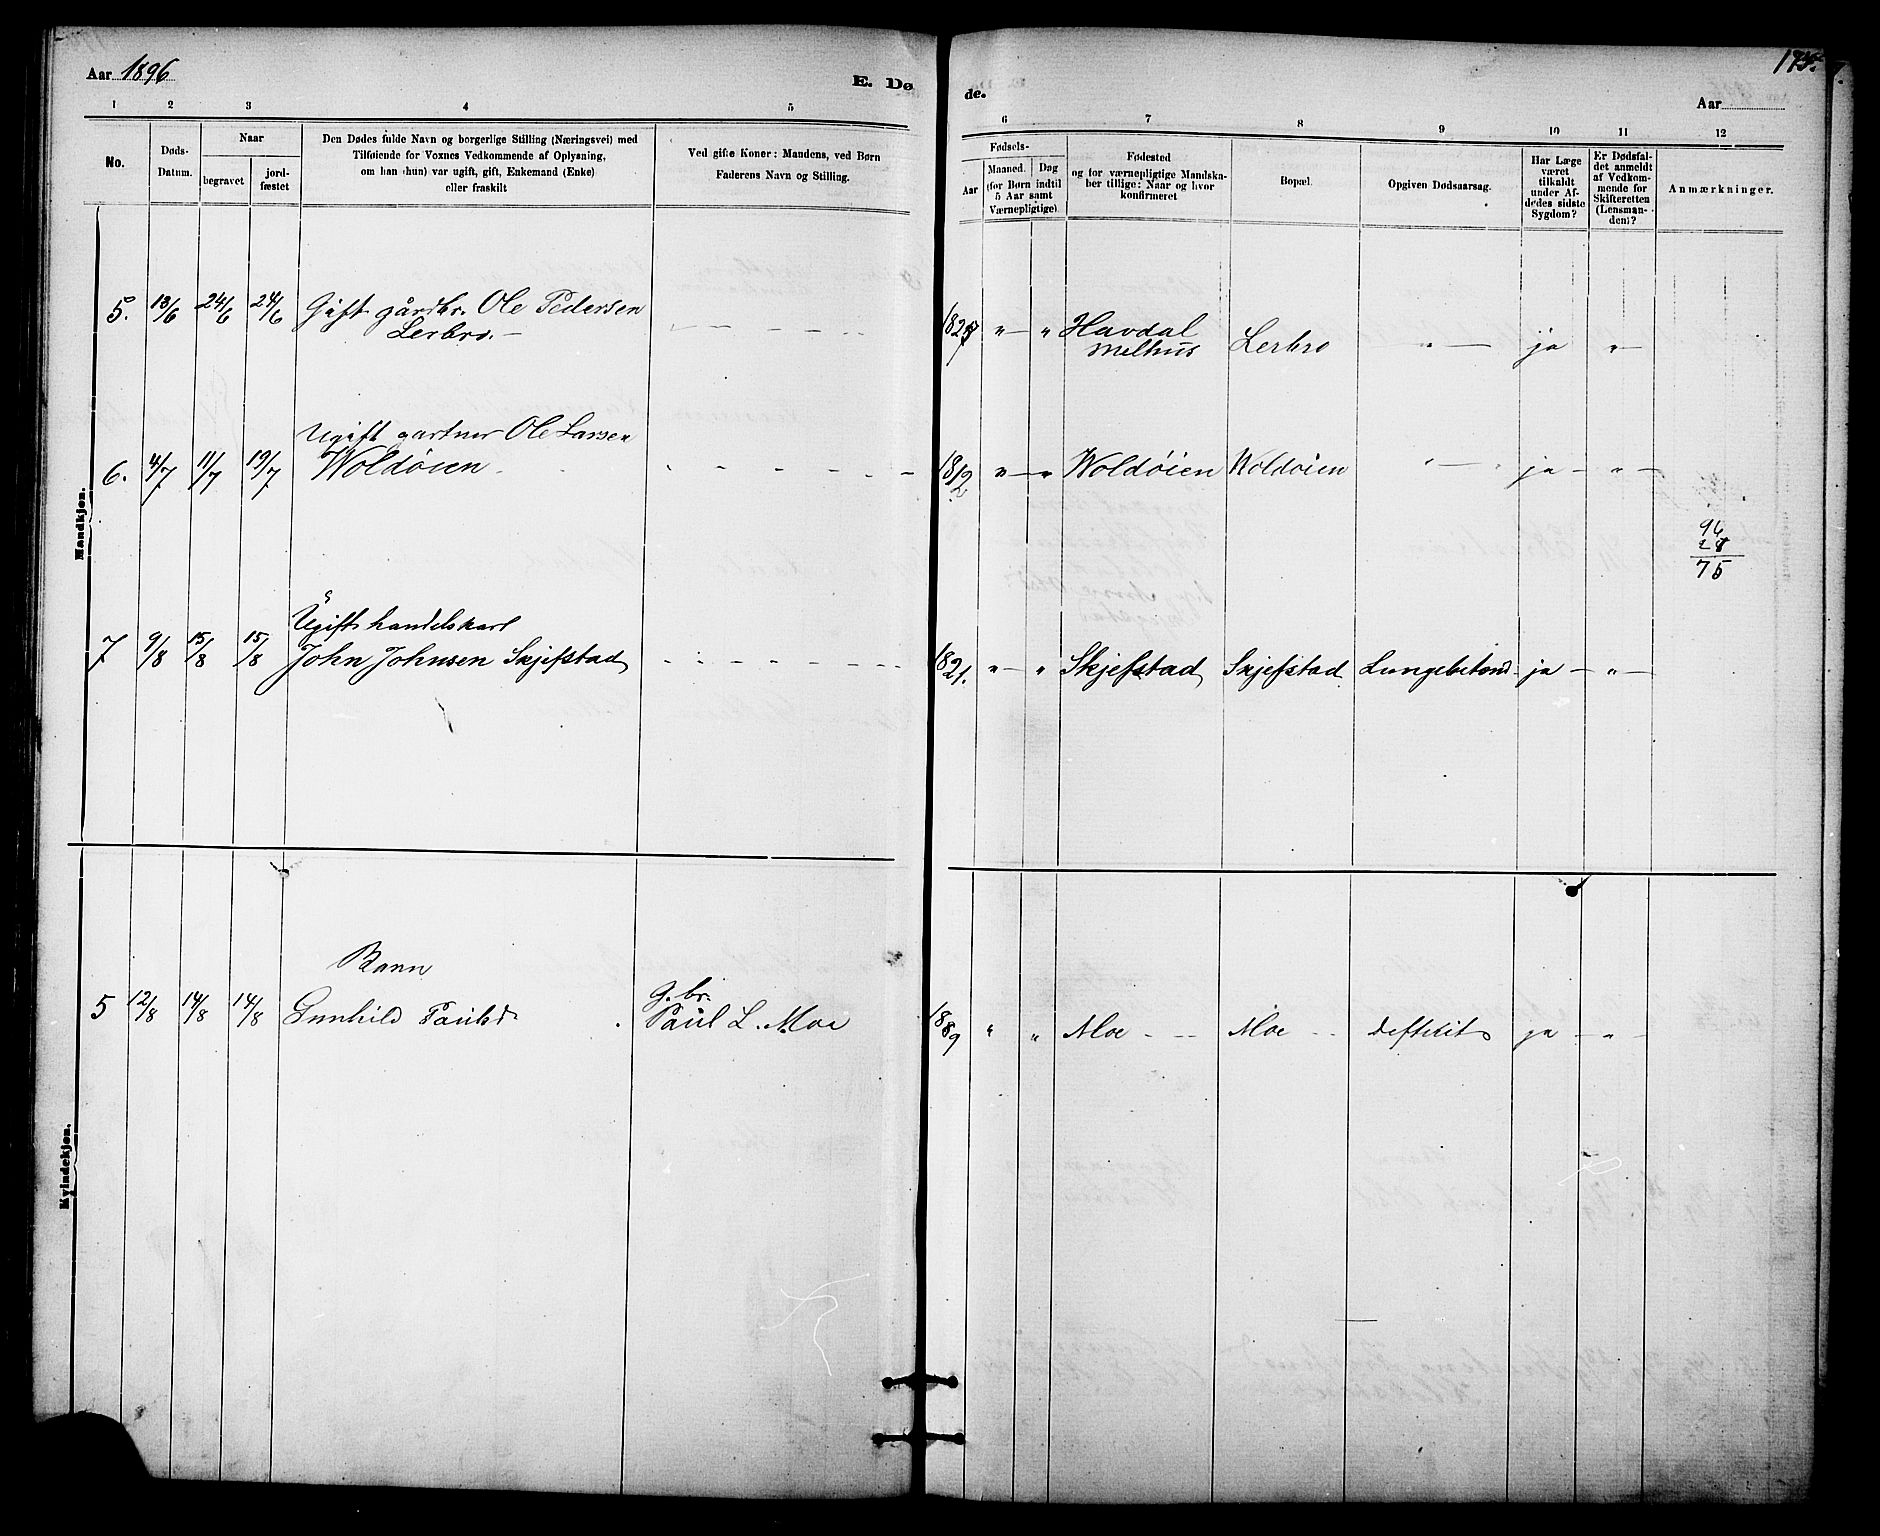 Aar 1896
E. Dø
de.
175.
Aar
1 2 3 4 5
6 7 8 9 10 11 12
No.
Døds-
Datum.
Naar
begravet
jord-
fæstet
Den Dødes fulde Navn og borgerlige Stilling (Næringsvei) med
Tilføiende for Voxnes Vedkommende af Oplysning,
om han (hun) var ugift, gift, Enkemand (Enke)
eller fraskilt
Ved gifte Koner: Mandens, ved Børn
Faderens Navn og Stilling.
Fødsels-
Aar
Maaned. Dag
(for Børn indtil
5 Aar samt
Værnepligtige)
Fødested
og for værnepligtige Mandska-
ber tillige: Naar og hvor
konfirmeret
Bopæl.
Opgiven Dødsaarsag.
Har Læge
været
tilkaldt
under Af-
dødes sidste
Sygdom?
Er Dødsfal-
det anmeldt
af Vedkom-
mende for
Skifteretten
(Lensman-
den)?
Anmærkninger.
Mandkjøn.
5. 13/6 24/6 24/6 Gift gårdbr. Ole Pedersen
Lerbro. –
" – " Havdal
Melhus Lerbro " – ja " –
Ugift gartner Ole Larsen
6. 4/7 11/7 19/7 Woldøien
1812 " – " Woldøien Woldøien " – " ja – " –
96
75
Ugift handelskarl
7 9/8 15/8 15/8 John Johnsen Skjefstad
1821. " – " Skjefstad Skjefstad Lungebetænd. ja – " –
Kvindekjøn.
Barn
5 12/8 14/8 14/8 Gunhild Paulsd.
g.br.
Paul L. Moe
1889 " " Moe Moe defterit ja – " –